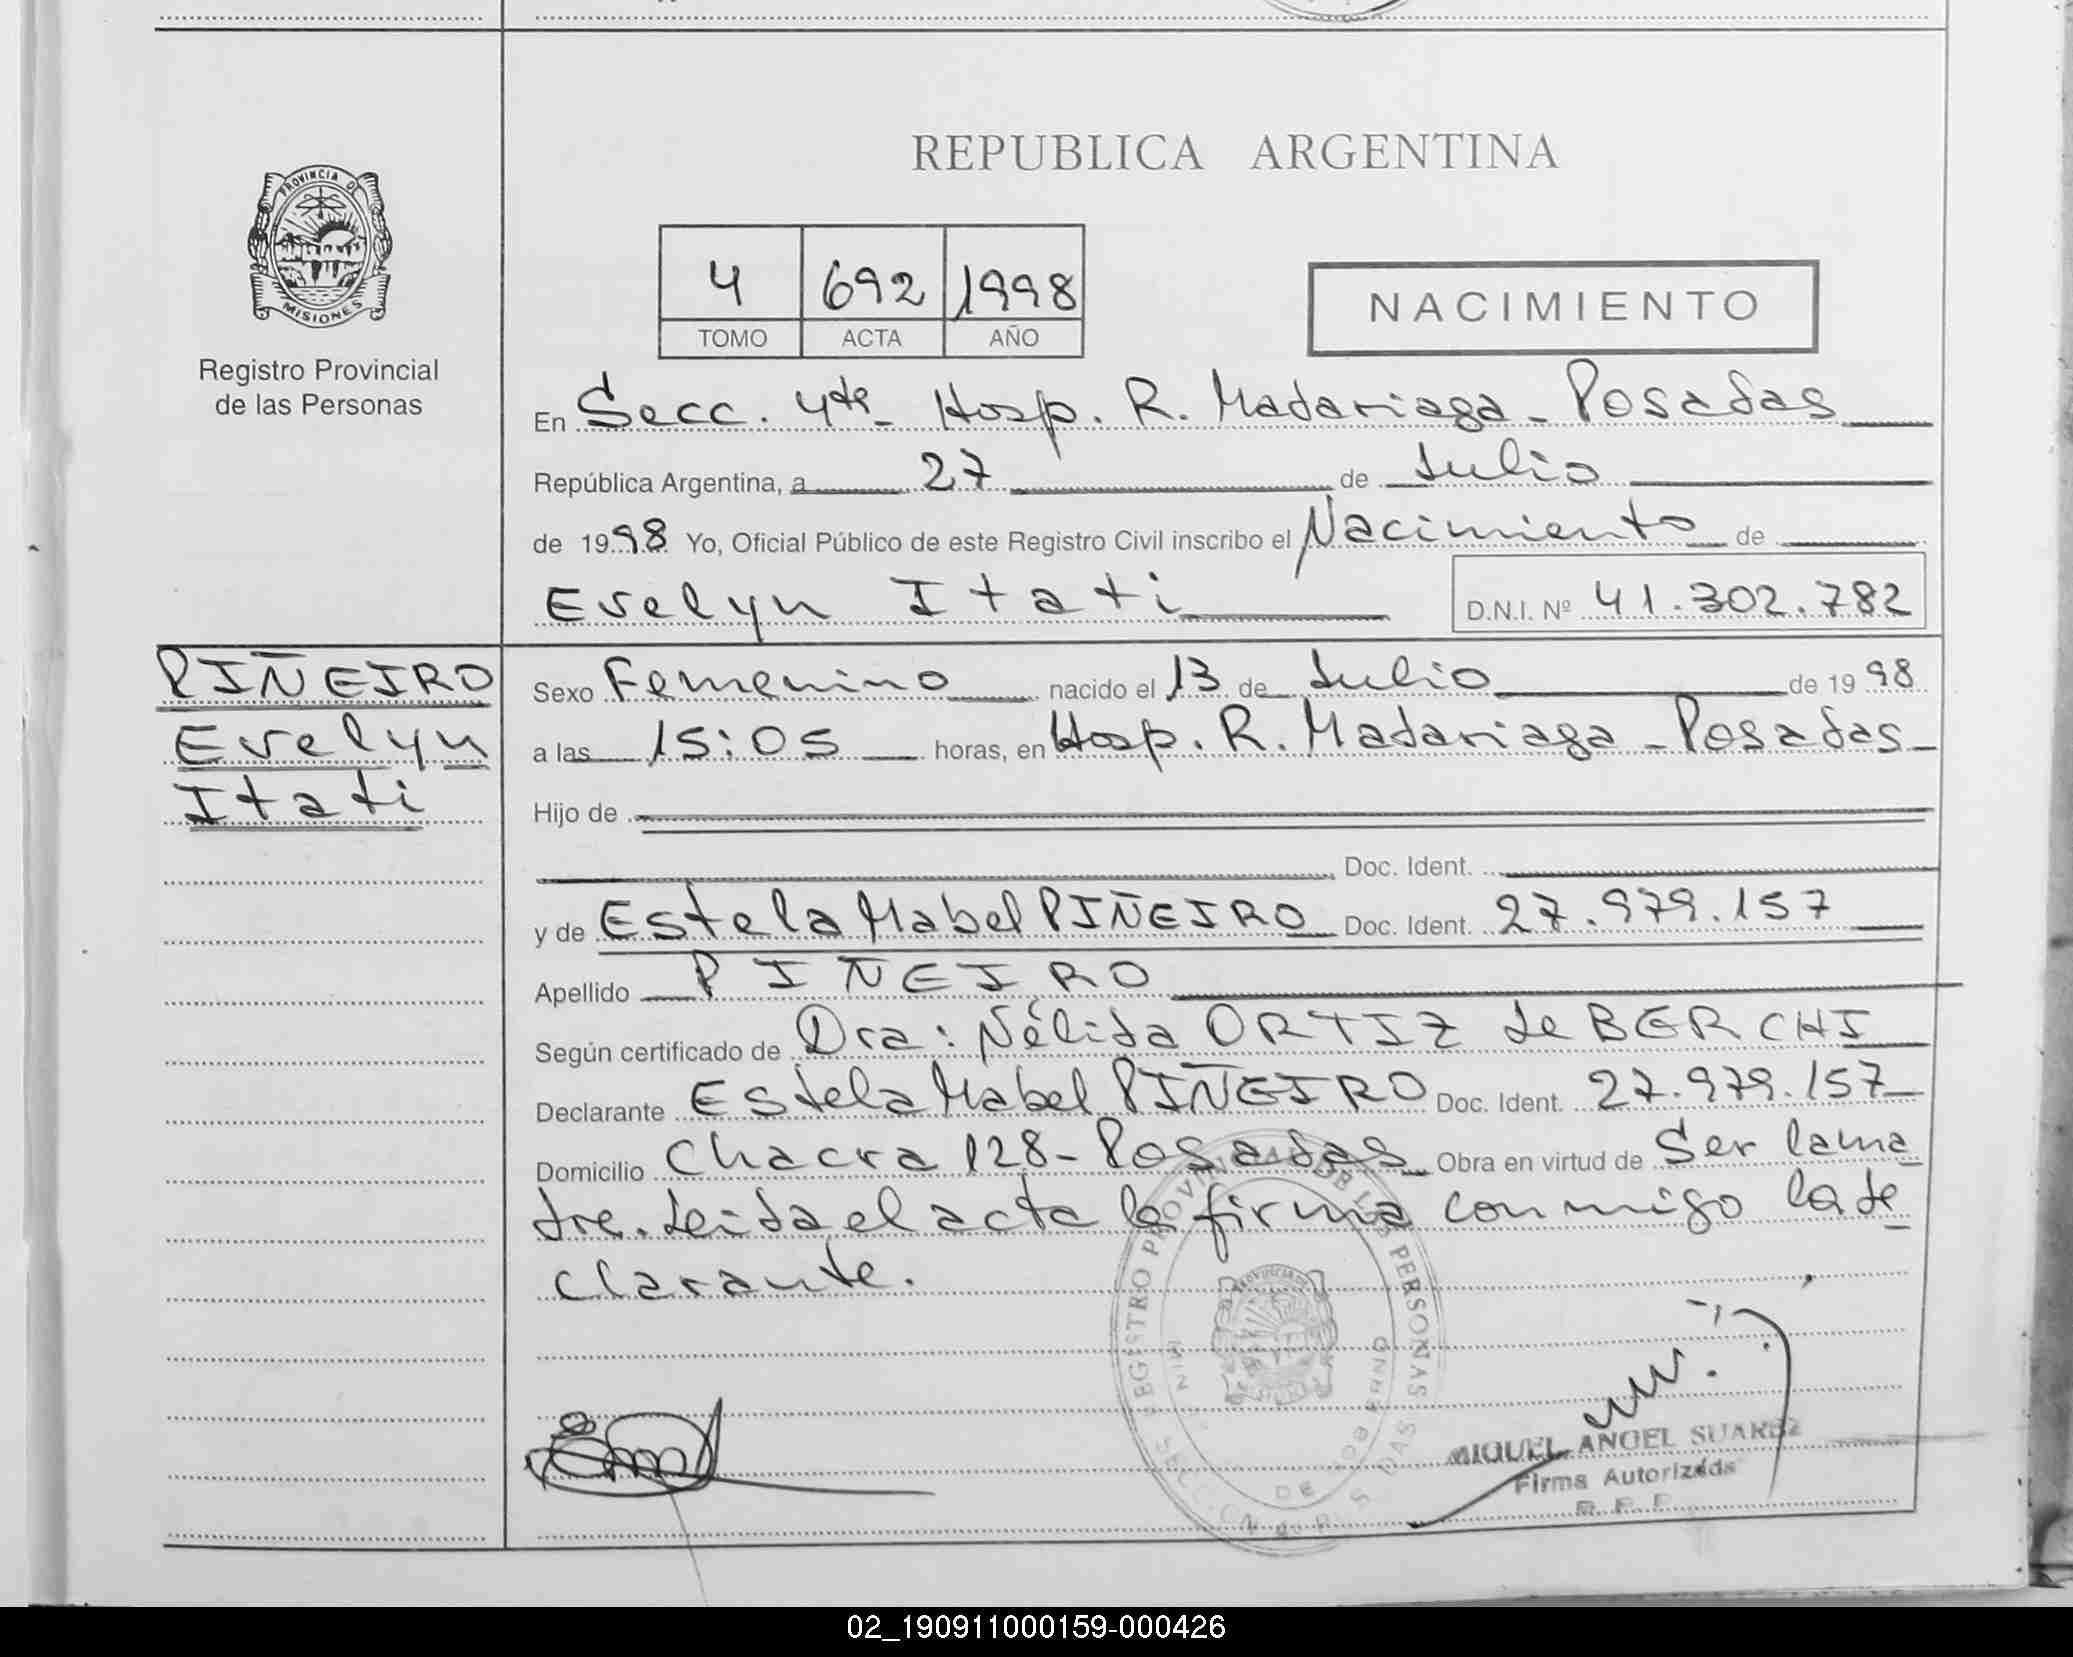 REPUBLICA ARGENTINA
PROVINCIA DE
MISIONES
Registro Provincial
de las Personas
4 692 1998
TOMO ACTA AÑO
NACIMIENTO
En Secc. 4ta - Hosp. R. Madariaga - Posadas
República Argentina, a 27 de Julio
de 1998 Yo, Oficial Público de este Registro Civil inscribo el Nacimiento de
Evelyn Itati D.N.I. Nº 41.302.782
PIÑEIRO
Evelyn
Itati
Sexo Femenino nacido el 13 de Julio de 1998
a las 15:05 horas, en Hosp. R. Madariaga - Posadas -
Hijo de
Doc. Ident.
y de Estela Mabel PIÑEIRO Doc. Ident. 27.979.157
Apellido PIÑEIRO
Según certificado de Dra: Nélida ORTIZ de BERCHI
Declarante Estela Mabel PIÑEIRO Doc. Ident. 27.979.157
Domicilio Chacra 128 - Posadas Obra en virtud de Ser la ma
dre. Leida el acta la firma conmigo la de
clarante.
REGISTRO PROVINCIAL DE LAS PERSONAS
MIGUEL ANGEL SUAREZ
Firma Autorizada
R. P. P.
02_190911000159-000426